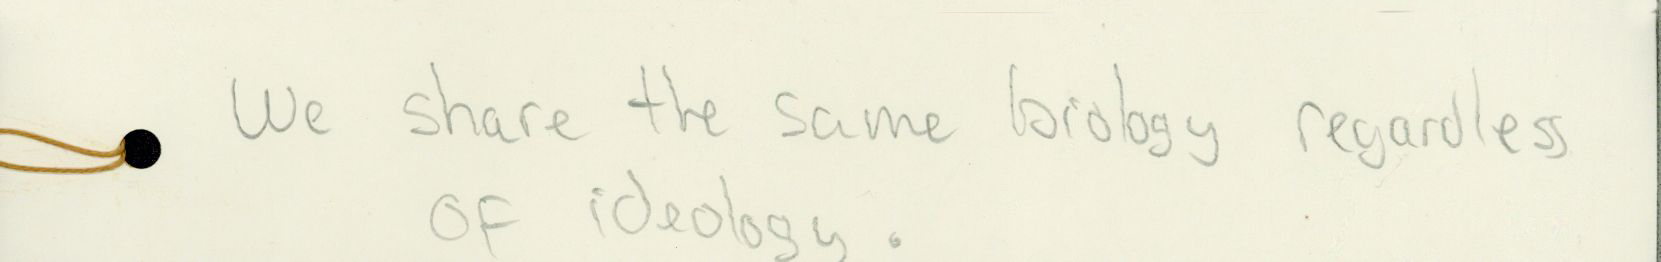 We share the same biology regardless
of ideology.